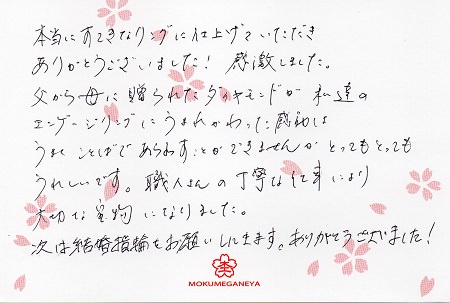 本当にすてきなリングに仕上げていただき
ありがとうございました！ 感激しました。
父から母に贈られたダイヤモンドが 私達の
エンゲージリングにうまれかわった感動は
うまく ことばで あらわすことができませんが とっても とっても
うれしいです。 職人さんの 丁寧な仕事により
大切な宝物 になりました。
次は結婚指輪をお願いしにきます。ありがとうございました！
MOKUMEGANEYA